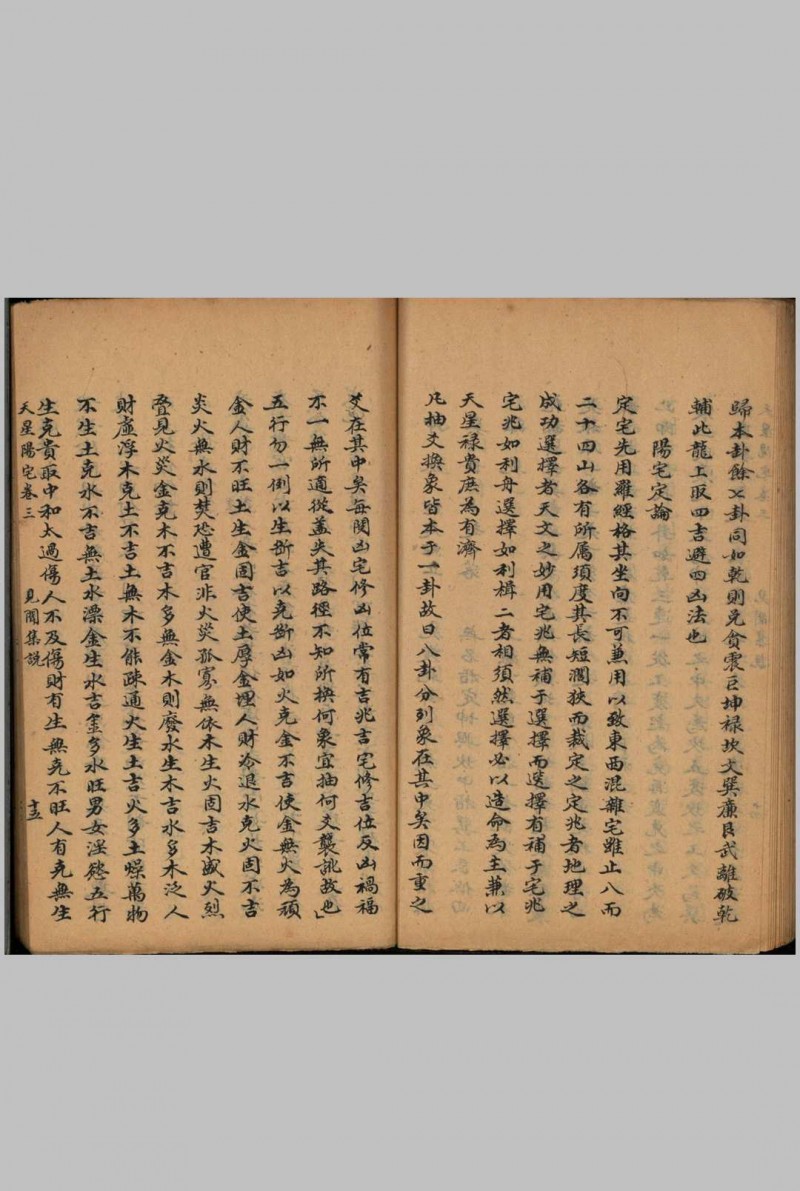 歸本卦餘七卦同如乾則兌貪震巨坤祿坎文巽廉艮武離破乾
輔此龍上取四吉避四凶法也
陽宅定論
定宅先用羅經格其坐向不可兼用以致東西混雜宅雖止八而
二十四山各有所屬須度其長短濶狹而裁定之定兆者地理之
成功選擇者天文之妙用宅兆無補于選擇而選擇有補于宅兆
宅兆如利舟選擇如利楫二者相須然選擇必以造命為主兼以
天星祿貴庶為有濟
凡抽爻換象皆本于一卦故曰八卦分列象在其中矣因而重之
爻在其中矣每閱凶宅修凶位常有吉兆吉宅修吉位反凶禍福
不一無所適從蓋失其路徑不知所換何象宜抽何爻襲訛故也
五行勿一例以生斷吉以克斷凶如火克金不吉使金無火為頑
金人財不旺土生金固吉使土厚金埋人財冷退水克火固不吉
炎火無水則焚恐遭官非火災孤寡無依木生火固吉木盛火烈
叠見火災金克木不吉木多無金木則廢水生木吉水多木泛人
財虛浮木克土不吉土無木不能疎通火生土吉火多土燥萬物
不生土克水不吉無土水漂金生水吉金多水旺男女淫慾五行
生克貴取中和太過傷人不及傷財有生無克不旺人有克無生
天星陽宅卷三 見聞集說 十五